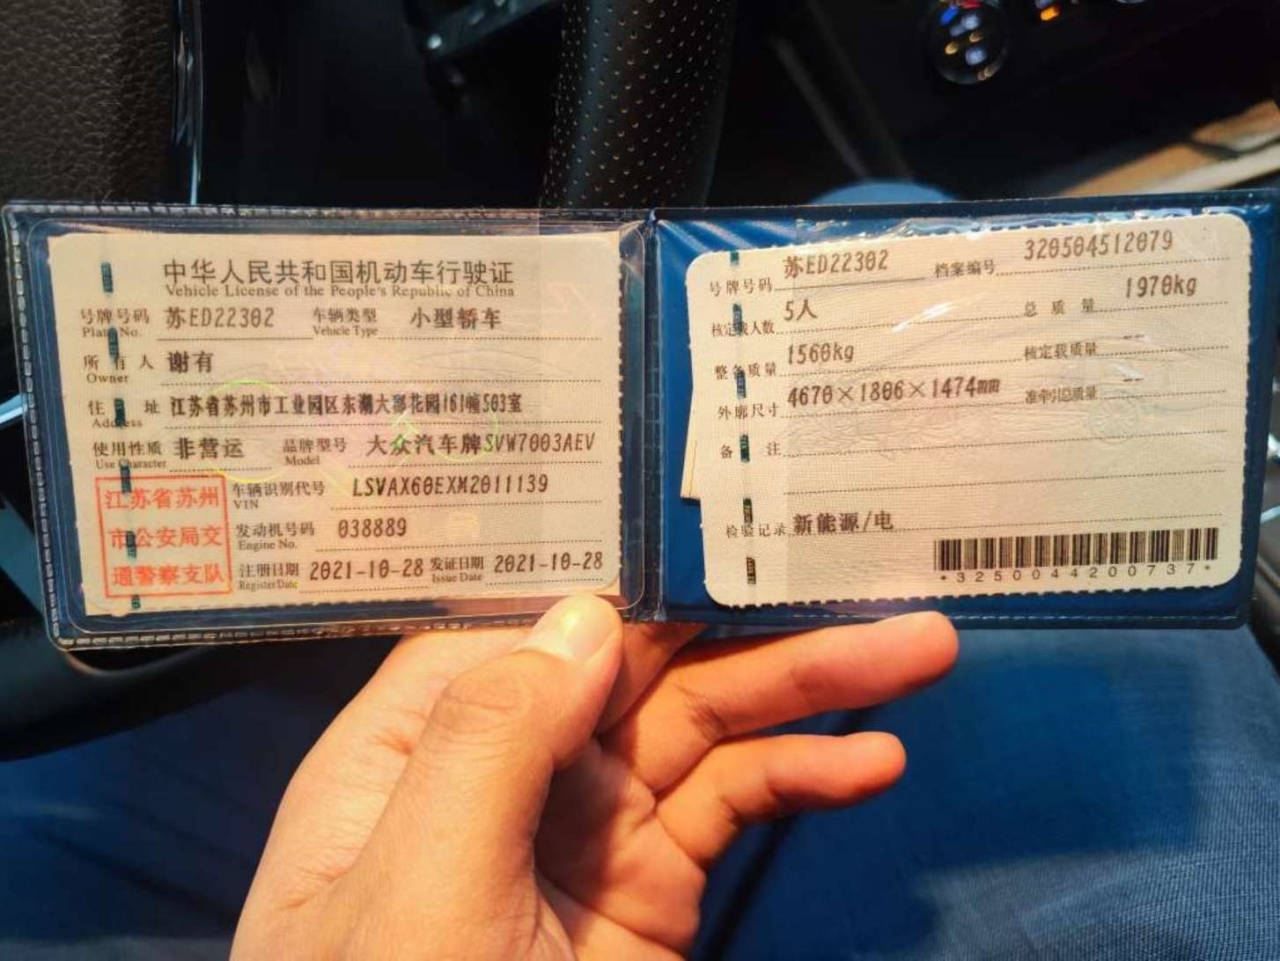 中华人民共和国机动车行驶证
Vehicle License of the People's Republic of China
号牌号码 苏ED22302 车辆类型 小型轿车
Plate No. Vehicle Type
所有人 谢有
Owner
住址 江苏省苏州市工业园区东湖大郡花园161幢503室
Address
使用性质 非营运 品牌型号 大众汽车牌SVW7003AEV
Use Character Model
江苏省苏州
市公安局交
通警察支队
车辆识别代号 LSVAX60EXM2011139
VIN
发动机号码 038889
Engine No.
注册日期 2021-10-28 发证日期 2021-10-28
Register Date Issue Date
号牌号码 苏ED22302 档案编号 320504512079
核定载人数 5人 总质量 1970kg
整备质量 1560kg 核定载质量 --
外廓尺寸 4670×1806×1474mm 准牵引总质量 --
备注
检验记录 新能源/电
*3250044200737*